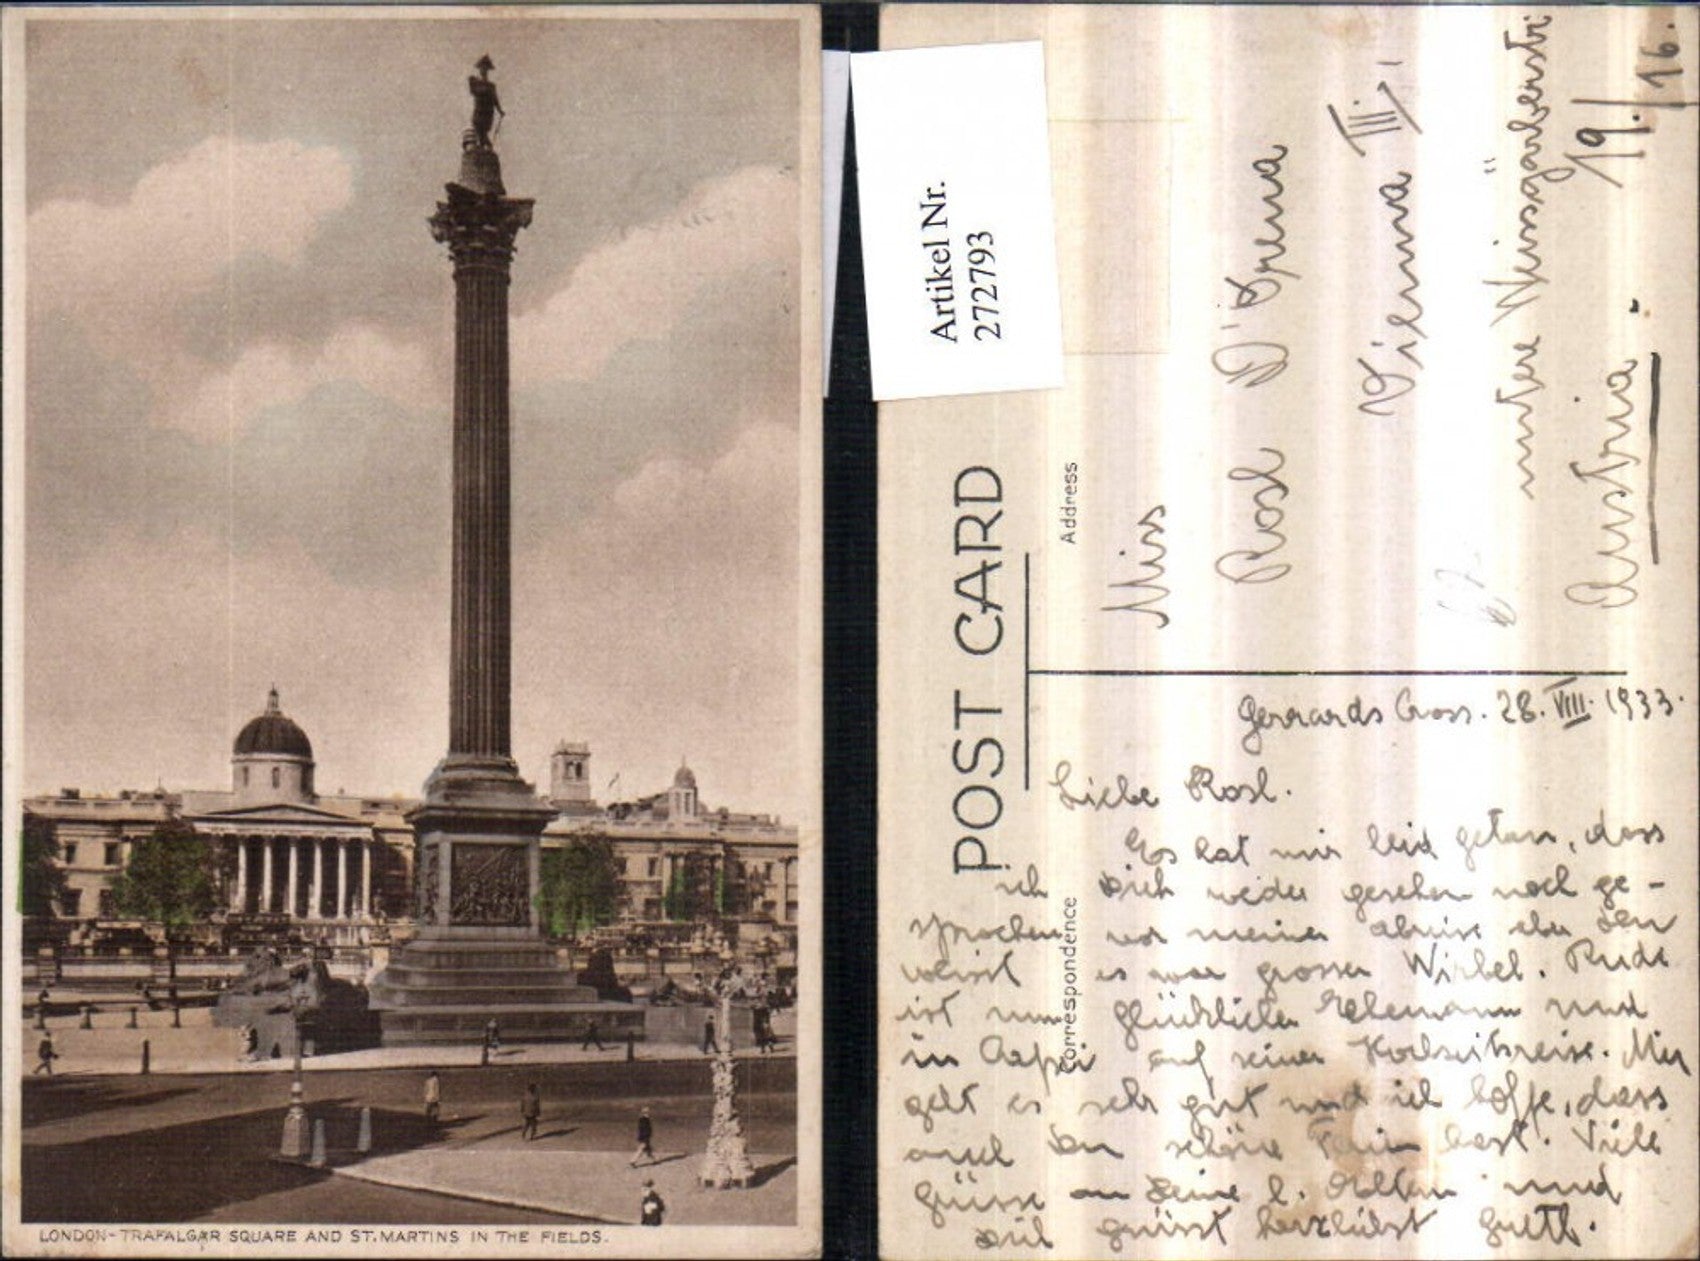 LONDON-TRAFALGAR SQUARE AND ST. MARTINS IN THE FIELDS.
Artikel Nr.
272793
POST CARD
Address
Miss
Rosl
Vienna III.,
untere Weissgärberstr
19./16.
Austria.
Correspondence
Gerrards Cross. 28. VIII. 1933.
Liebe Rosl.
Es hat mir leid getan, dass
ich Dich weder gesehen noch ge-
sprochen vor meiner Abreise aber Du
weisst es war grosser Wirbel. Rudi
ist nun glücklicher Ehemann und
in Capri auf seiner Hochzeitsreise. Mir
geht es sehr gut und ich hoffe, dass
auch Du schöne Ferien hast. Viele
Grüsse an Deine l. Eltern und
Dich grüsst herzlichst Gretl.